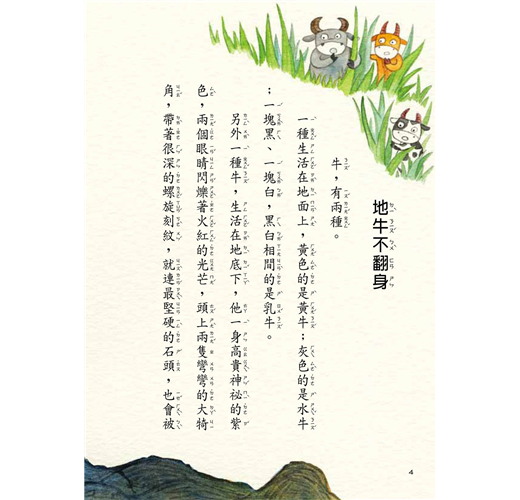 地牛不翻身
牛，有兩種。
一種生活在地面上，黃色的是黃牛；灰色的是水牛
；一塊黑、一塊白，黑白相間的是乳牛。
另外一種牛，生活在地底下，他一身高貴神祕的紫
色，兩個眼睛閃爍著火紅的光芒，頭上兩隻彎彎的大犄
角，帶著很深的螺旋刻紋，就連最堅硬的石頭，也會被
4